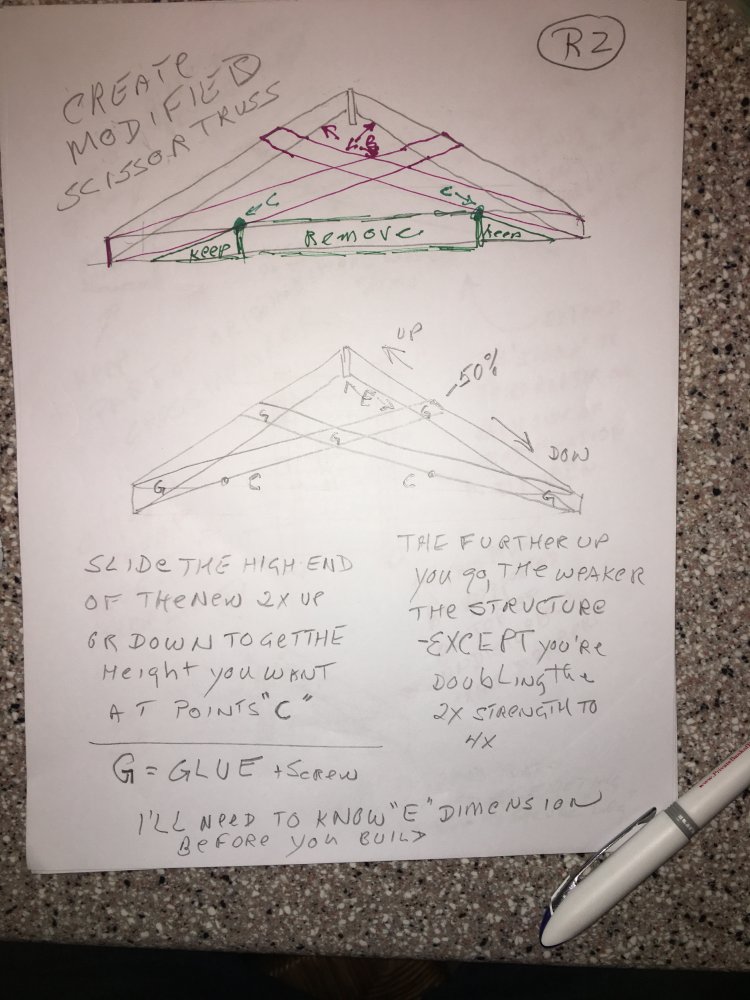 R2
CREATE
MODIFIED
SCISSOR TRUSS
C
C
KEEP
REMOVE
KEEP
UP
-50%
E
G
G
G
DOW
G
C
C
G
SLIDE THE HIGH END
OF THE NEW 2X UP
OR DOWN TO GET THE
HEIGHT YOU WANT
AT POINTS "C"
G = GLUE + SCREW
THE FURTHER UP
YOU GO, THE WEAKER
THE STRUCTURE
-EXCEPT YOU'RE
DOUBLING THE
2X STRENGTH TO
4X
I'LL NEED TO KNOW "E" DIMENSION
BEFORE YOU BUILD